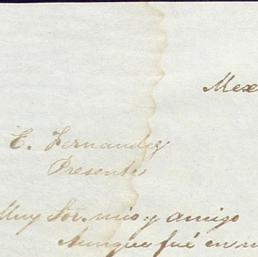 Mex
E. Fernandez
Presente
Muy Sor. mio y amigo
Aunque fué en